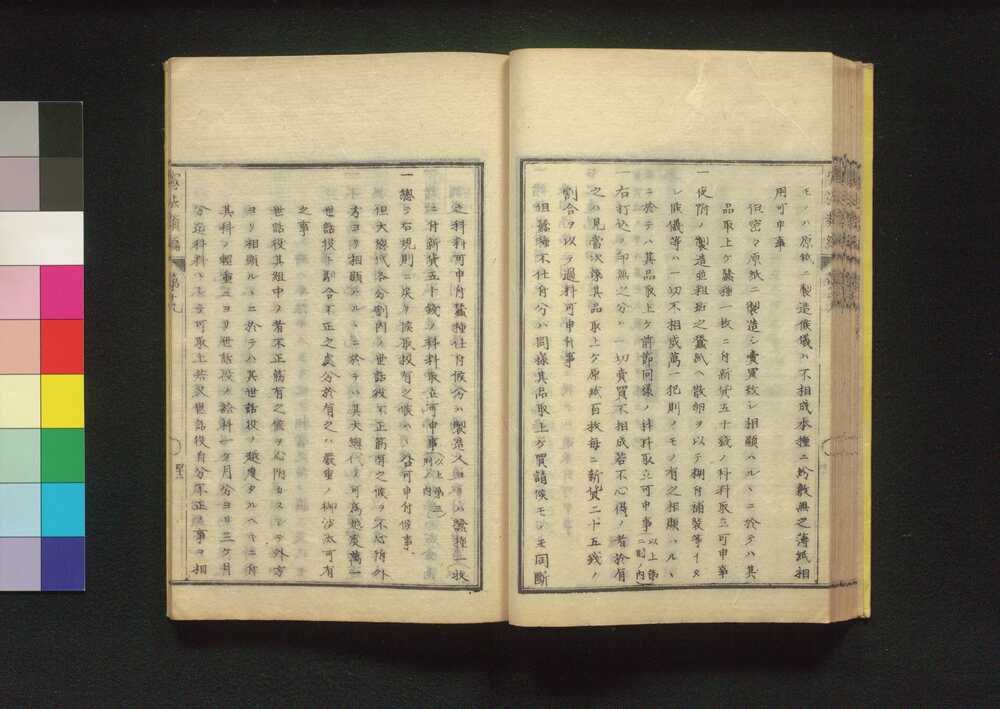 モノハ原紙ニ製造候儀ハ不相成本種ニ紛敷無之薄紙相
用可申事
但密々原紙ニ製造シ賣買致シ相顯ハルヽニ於テハ其
品取上ケ蠶種一枚ニ付新貨五十錢ノ科料取立可申事
一夜附ノ製造並粗班之蠶紙ヘ散卵ヲ以テ糊付補裝等イタ
シ候儀等ハ一切不相成萬一犯則ノモノ有之相顯ハルヽ
ニ於テハ其品取上ケ前節同樣ノ科料取立可申事以上第二則ノ内
一右打込ノ印無之分ハ一切賣買不相成若不心得ノ者於有
之ハ見當次第其品取上ケ原紙百枚每ニ新貨二十五錢ノ
割合ヲ以テ過料可申付事
但蠶種不仕付分ハ同樣其品取上ケ買請候モノモ同斷
之科料可申付蠶種仕付候分ハ製造人蠶種一枚
ニ付新貨五十錢ノ科料取立可申事以上第三則ノ内
一總テ右規則ニ戾リ候取扱有之候ハヽ咎可申付候事
但大總代各分割内ノ世話役不正筋有之候ヲ不心附外
方ヨリ相顯ハルヽニ於テハ其大總代ノ可爲越度萬一
世話役ト馴合不正之處分於有之ハ嚴重ノ御沙汰可有
之事
世話役其組中ノ者不正筋有之候ヲ心附カスシテ外方
ヨリ相顯ルヽニ於テハ其世話役ノ越度タルヘキニ付
其科ノ輕重ニヨリ世話役ノ給料一ケ月分ヨリ三ケ月
分迄科料可取上若又世話役自分不正之事ヨ相
憲法類編
第十九